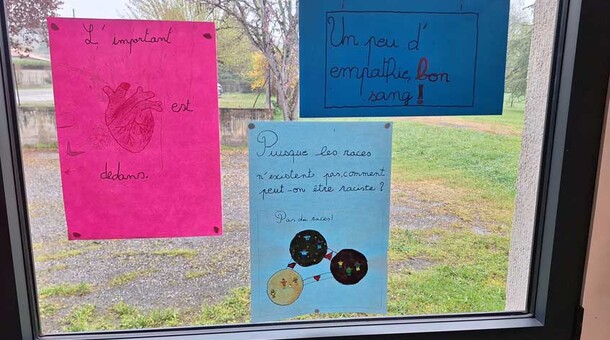 L' important
est
dedans.
Un peu d'
empathie, bon
sang !
Puisque les races
n'existent pas, comment
peut-on être raciste ?
Pas de races !